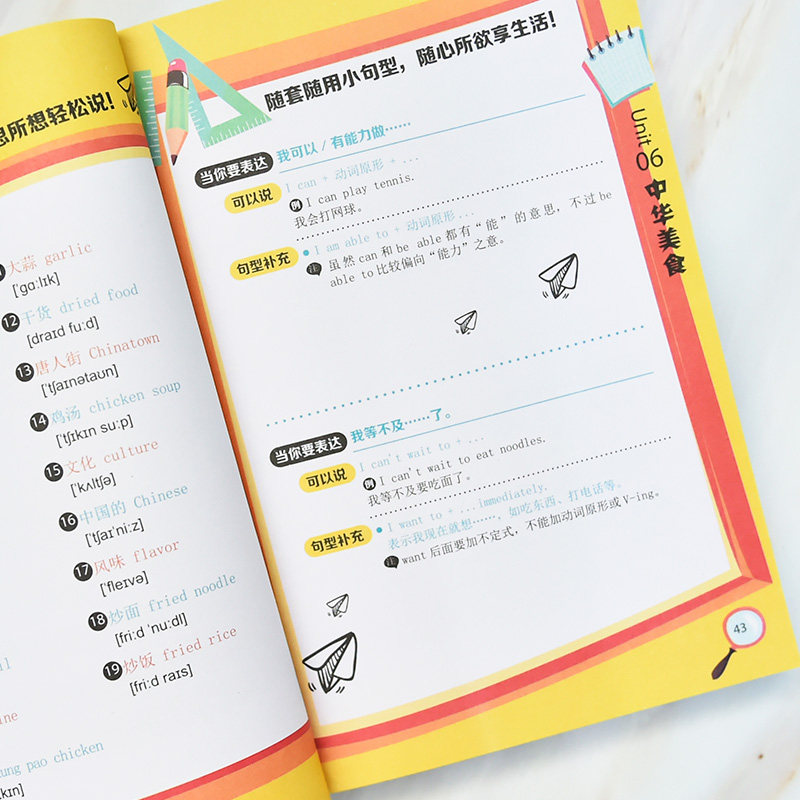 想所想轻松说!
大蒜 garlic
['gɑːlɪk]
12 干货 dried food
[draɪd fuːd]
13 唐人街 Chinatown
['tʃaɪnətaʊn]
14 鸡汤 chicken soup
['tʃɪkɪn suːp]
15 文化 culture
['kʌltʃə]
16 中国的 Chinese
[ˌtʃaɪ'niːz]
17 风味 flavor
['fleɪvə]
18 炒面 fried noodle
[friːd 'nuːdl]
19 炒饭 fried rice
[friːd raɪs]
pao chicken
随套随用小句型,随心所欲享生活!
当你要表达 我可以/有能力做……
可以说 I can + 动词原形 + ...
例 I can play tennis.
我会打网球。
句型补充 I am able to + 动词原形...
注 虽然 can 和 be able 都有“能”的意思,不过 be
able to 比较偏向“能力”之意。
当你要表达 我等不及……了。
可以说 I can't wait to + ...
例 I can't wait to eat noodles.
我等不及要吃面了。
句型补充 I want to + ... immediately.
表示我现在就想……,如吃东西、打电话等。
注 want 后面要加不定式,不能加动词原形或 V-ing。
Unit 06 中华美食
43